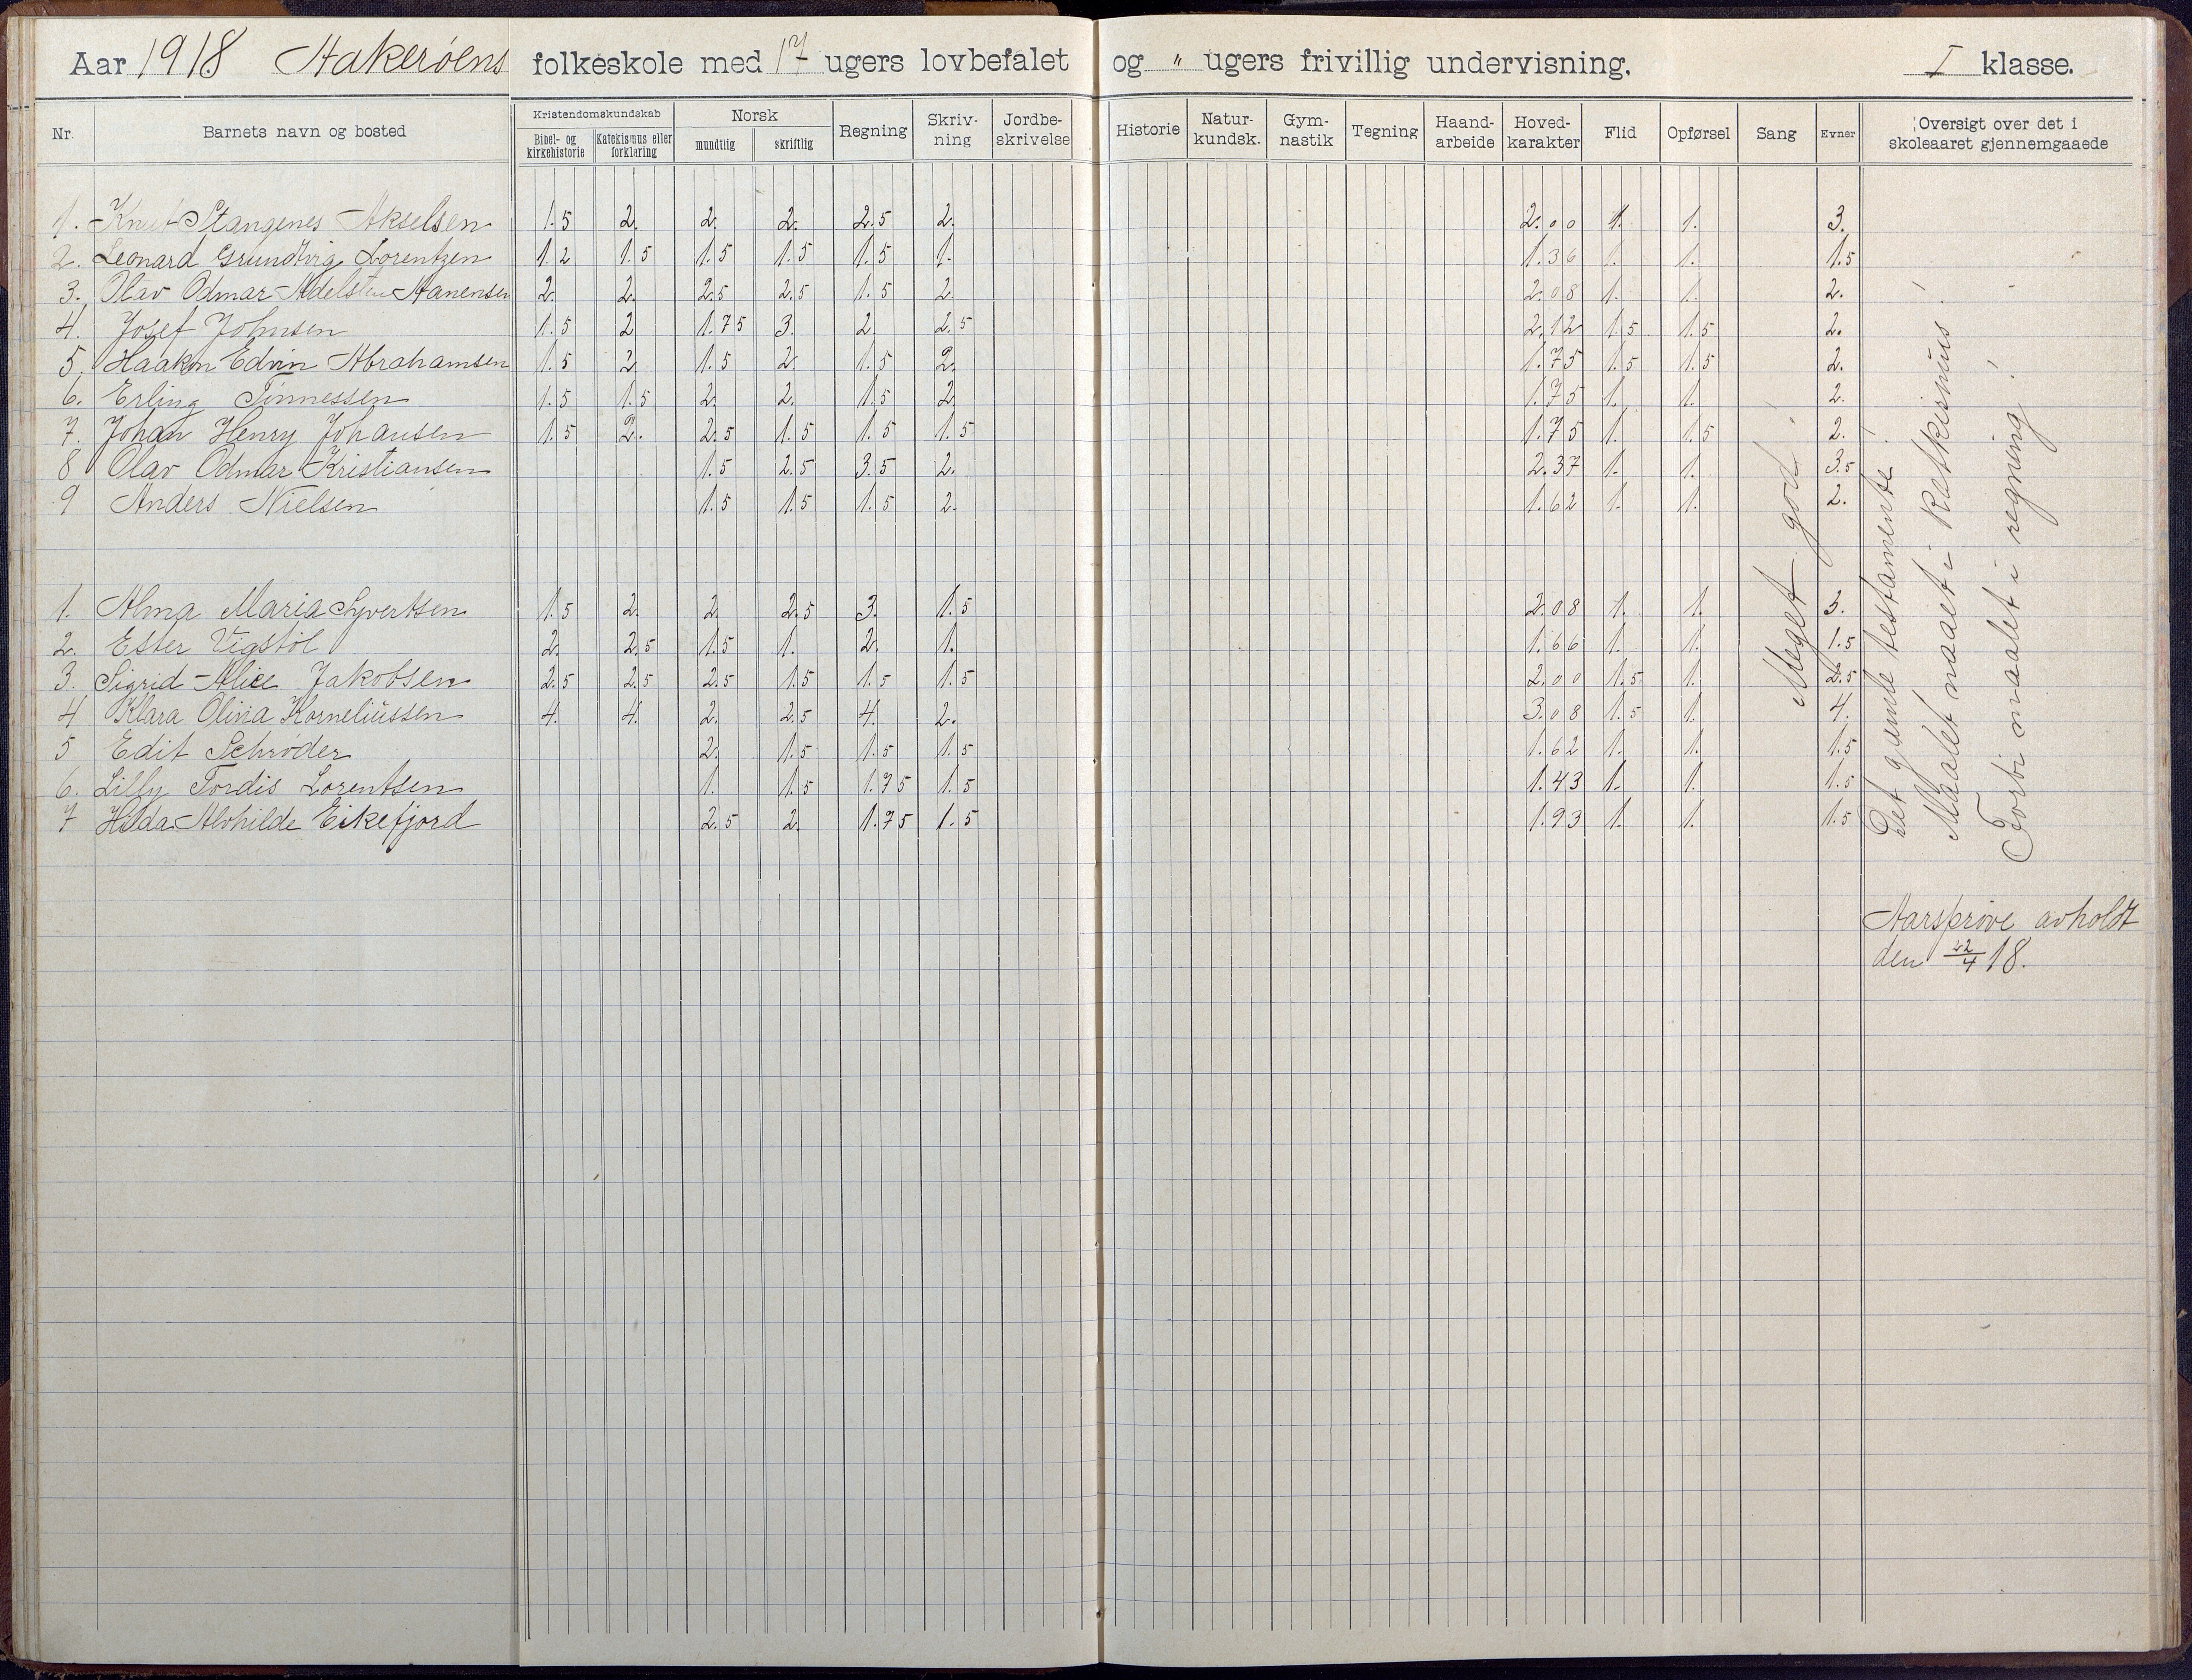 Aar 1918 Stakerøens folkeskole med 17 ugers lovbefalet og " ugers frivillig undervisning. I klasse.
Nr. Barnets navn og bosted Kristendomskundskab Bibel- og kirkehistorie Katekismus eller forklaring Norsk mundtlig skriftlig Regning Skriv-ning Jordbe-skrivelse Historie Natur-kundsk. Gym-nastik Tegning Haand-arbeide Hoved-karakter Flid Opførsel Sang Evner Oversigt over det i skoleaaret gjennemgaaede
1. Knut Stangenes Akselsen 1.5 2. 2. 2. 2.5 2. 2.00 1. 1. 3.
2. Leonard Grundtvig Lorentzen 1.2 1.5 1.5 1.5 1.5 1. 1.36 1. 1. 1.5
3. Olav Odmar Adelsten Aanensen 2. 2. 2.5 2.5 1.5 2 2.08 1. 1. 2.
4. Josef Johnsen 1.5 2 1.75 3. 2. 2.5 2.12 1.5 1.5 2.
5. Haakon Edvin Abrahamsen 1.5 2 1.5 2. 1.5 2. 1.75 1.5 1.5 2.
6. Erling Tønnessen 1.5 1.5 2. 2. 1.5 2 1.75 1. 1. 2.
7. Johan Henry Johansen 1.5 2. 2.5 1.5 1.5 1.5 1.75 1. 1.5 2.
8 Olav Odmar Kristiansen 1.5 2.5 3.5 2. 2.37 1. 1. 3.5
9 Anders Nielsen 1.5 1.5 1.5 2. 1.62 1. 1. 2.
1. Alma Maria Syvertsen 1.5 2. 2 2.5 3. 1.5 2.08 1. 1. 3.
2. Ester Vigstøl 2. 2.5 1.5 1. 2. 1. 1.66 1. 1. 1.5
3. Sigrid Alice Jakobsen 2.5 2.5 2.5 1.5 1.5 1.5 2.00 1.5 1. 2.5
4 Klara Olivia Korneliussen 4. 4. 2. 2.5 4. 2. 3.08 1.5 1. 4.
5 Edit Schrøder 2. 1.5 1.5 1.5 1.62 1. 1. 1.5
6. Lilly Tordis Lorentsen 1. 1.5 1.75 1.5 1.43 1. 1. 1.5
7 Hilda Alvhilde Eikefjord 2.5 2. 1.75 1.5 1.93 1. 1. 1.5
Meget god!
Det gamle testamente!
Maalet naaet i katekismus!
Forbi maalet i regning!
Aarsprøve avholdt
den 22/4 18.